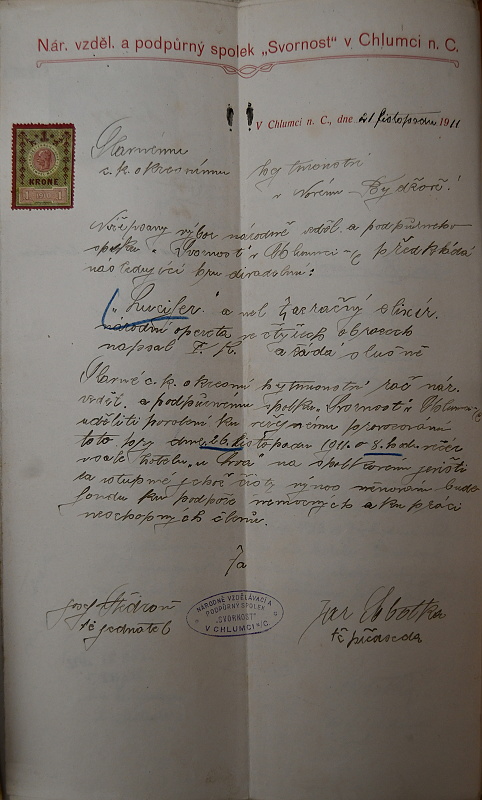 Nár. vzděl. a podpůrný spolek „Svornost" v Chlumci n. C.
V Chlumci n. C., dne 21 listopadu 1911
Slavnému
c. k. okresnímu hejtmanství
v Novém Bydžově!
KRONE
Níže psaný výbor národně vzděl. a podpůrného
spolku „Svornost" v Chlumci n/C předkládá
následující hru divadelní:
„Lucifer" aneb Zázračný elixír.
národní opereta ve čtyřech obrazech
napsal F. K. a žádá slušně
Slavné c. k. okresní hejtmanství rač nár.
vzděl. a podpůrnému spolku „Svornost" v Chlumci n/C
uděliti povolení ku veřejnému provozování
této hry dne 26. listopadu 1911 o 8. hod. večer
v sále hotelu „u Lva" na spolkovém jevišti
za vstupné jehož čistý výnos věnován bude
fondu ku podpoře nemocných a ku práci
neschopných členů.
Za
NÁRODNĚ VZDĚLÁVACÍ A
PODPŮRNÝ SPOLEK
„SVORNOST"
V CHLUMCI N/C.
Josef
tč jednatel
Jar
tč předseda